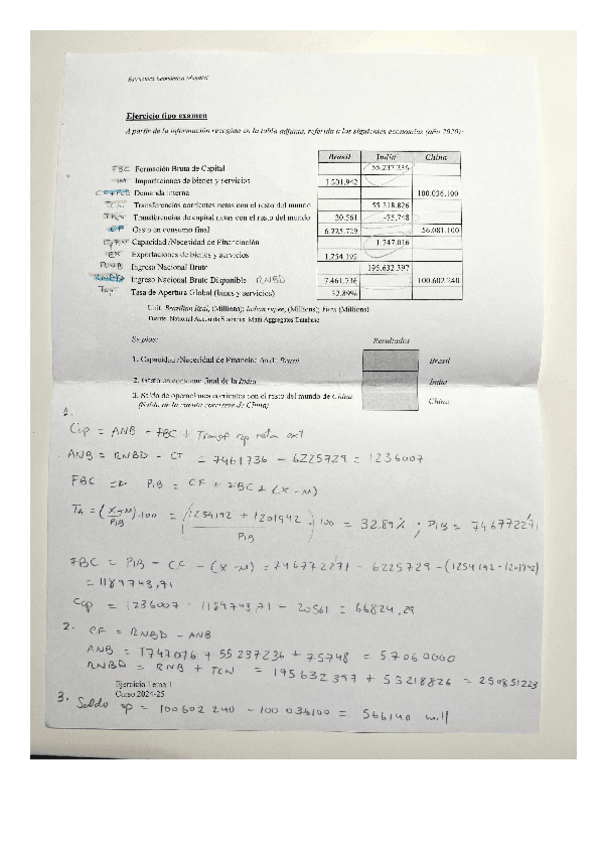 Ejercicio tipo examen
A partir de la información recogida en la tabla adjunta, referida a las siguientes economías (año 2020):
Brasil India China
FBC Formación Bruta de Capital 55.237.236
IM Importaciones de bienes y servicios 1.201.942
Demanda interna 100.036.100
TCN Transferencias corrientes netas con el resto del mundo 55.218.826
TKN Transferencias de capital netas con el resto del mundo 20.561 -75.748
CF Gasto en consumo final 6.225.729 56.081.100
Capacidad /Necesidad de Financiación 1.747.016
EX Exportaciones de bienes y servicios 1.254.192
RNB Ingreso Nacional Bruto 195.632.397
RNBD Ingreso Nacional Bruto Disponible RNBD 7.461.736 100.602.240
Tasa de Apertura Global (bienes y servicios) 32,89%
Unit: Brazilian Real, (Millions); Indian rupee, (Millions); Yuan (Millions)
Fuente: National Accounts Statistics: Main Aggregates Database
Se pide: Resultados
1. Capacidad /Necesidad de Financiación de Brasil Brasil
2. Gasto en consumo final de la India India
3. Saldo de operaciones corrientes con el resto del mundo de China
(Saldo de la cuenta corriente de China) China
1.
Cap = ANB - FBC + Transf cap netas ext
ANB = RNBD - CF = 7461736 - 6225729 = 1236007
FBC => PiB = CF + FBC + (X - M)
TA = (X+M/PiB)·100 = (1254192 + 1201942 / PiB)·100 = 32,89% ; PiB = 7467722'71
FBC = PiB - CF - (X - M) = 7467722'71 - 6225729 - (1254192 - 1201942)
= 1189743,71
Cap = 1236007 - 1189743,71 - 20561 = 66824,29
2. CF = RNBD - ANB
ANB = 1747016 + 55237236 + 75748 = 57060000
RNBD = RNB + TCN = 195632397 + 55218826 = 250851223
Ejercicio Tema 1
Curso 2024-25
3. Saldo op = 100602240 - 100036100 = 566140 mill